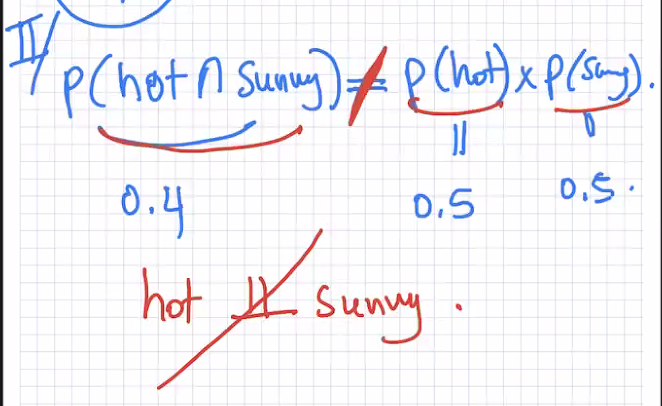 II/
P(hot ∩ sunny) ≠ P(hot) × P(sunny).
0.4 0.5 0.5.
hot ⫫̸ sunny.